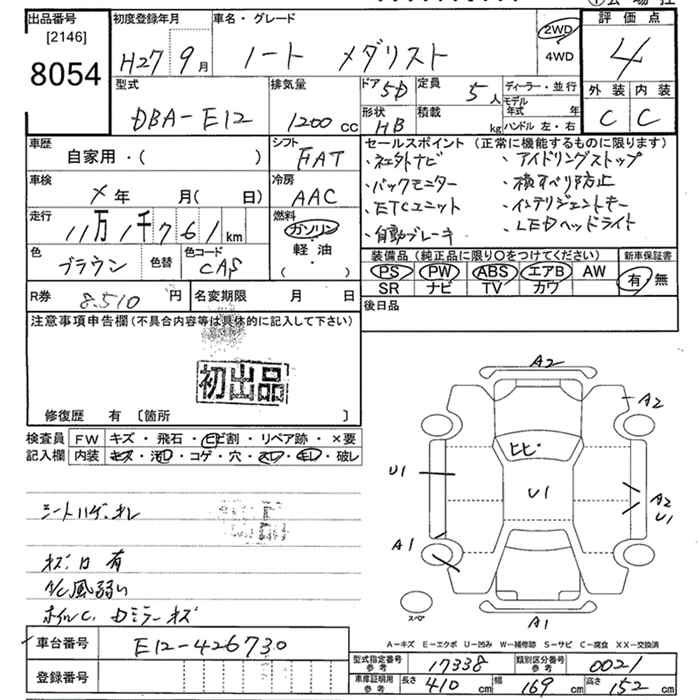 出品番号
[2146]
8054
初度登録年月
H27 9月
車名・グレード
ノート メダリスト
2WD
4WD
評価点
4
型式
DBA-E12
排気量
1200cc
ドア 5D
形状 HB
定員 5人
積載 kg
ディーラー・並行
モデル年式 年
ハンドル 左・右
外装 内装
C C
車歴
自家用・( )
シフト
FAT
車検
メ年 月( 日)
冷房
AAC
走行
11万1千761km
燃料
ガソリン
軽油
( )
色
ブラウン
色替
色コード
CAS
R券
8.510円
名変期限 月 日
セールスポイント (正常に機能するものに限ります)
・社外ナビ ・アイドリングストップ
・バックモニター ・横すべり防止
・ETCユニット ・インテリジェントキー
・自動ブレーキ ・LEDヘッドライト
装備品(純正品に限り〇をつけてください)
新車保証書
PS PW ABS エアB AW
SR ナビ TV カワ
有・無
後日品
注意事項申告欄(不具合内容等は具体的に記入して下さい)
初出品
修復歴 有 〔箇所 〕
検査員
記入欄
FW キズ・飛石・ヒビ割・リペア跡・×要
内装 キズ・汚レ・コゲ・穴・スレ・キレ・破レ
シートハゲ.オレ
A/C風弱い
A2
A2
ヒビ
U1
U1
A2
U1
A1
A1
スペア
A-キズ E-エクボ U-凹み W-補修跡 S-サビ C-腐食 XX-交換済
車台番号
E12-426730
登録番号
型式指定番号 参考 17338
類別区分番号 参考 0021
車庫証明用 参考 長さ 410cm 幅 169cm 高さ 152cm